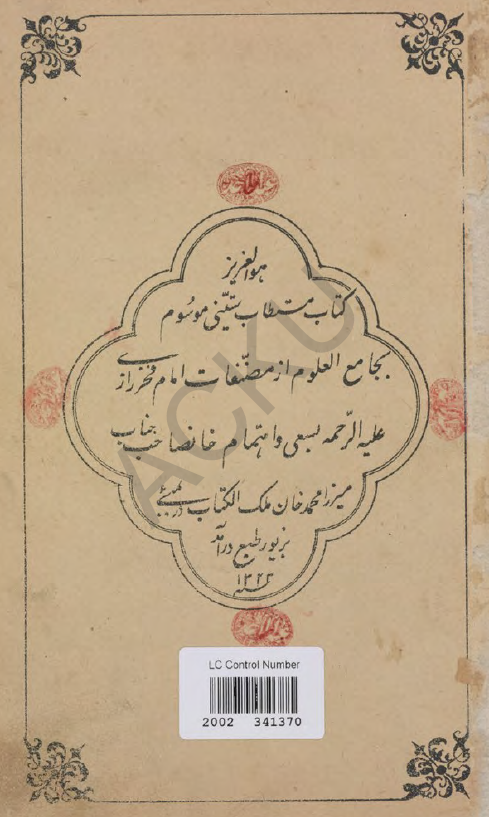 هوالعزیز
کتاب مستطاب ستّینی موسُوم
بجامع العلوم از مصنّفات امام فخررازی
علیه الرّحمه بسعی واهتمام خانصاحب جناب
میرزا محمد خان ملک الکتاب در بمبئی
بزیور طبع درآمد
سنه ۱۳۲۳
ACKU
LC Control Number
2002 341370